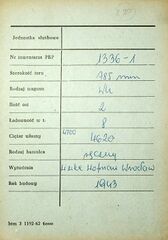 Jednostka służbowa
Nr inwentarza PKP 1336-1
Szerokość toru 785 mm
Rodzaj wagonu
Ilość osi 2
Ładowność w t. 8
Ciężar własny 4700 4620
Rodzaj hamulca ręczny
Wytwórnia Linke Hofman Wrocław
Rok budowy 1943